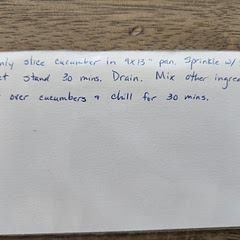 slice cucumber in 9x13" pan. Sprinkle w/
stand 30 mins. Drain. Mix other
over cucumbers & chill for 30 mins.